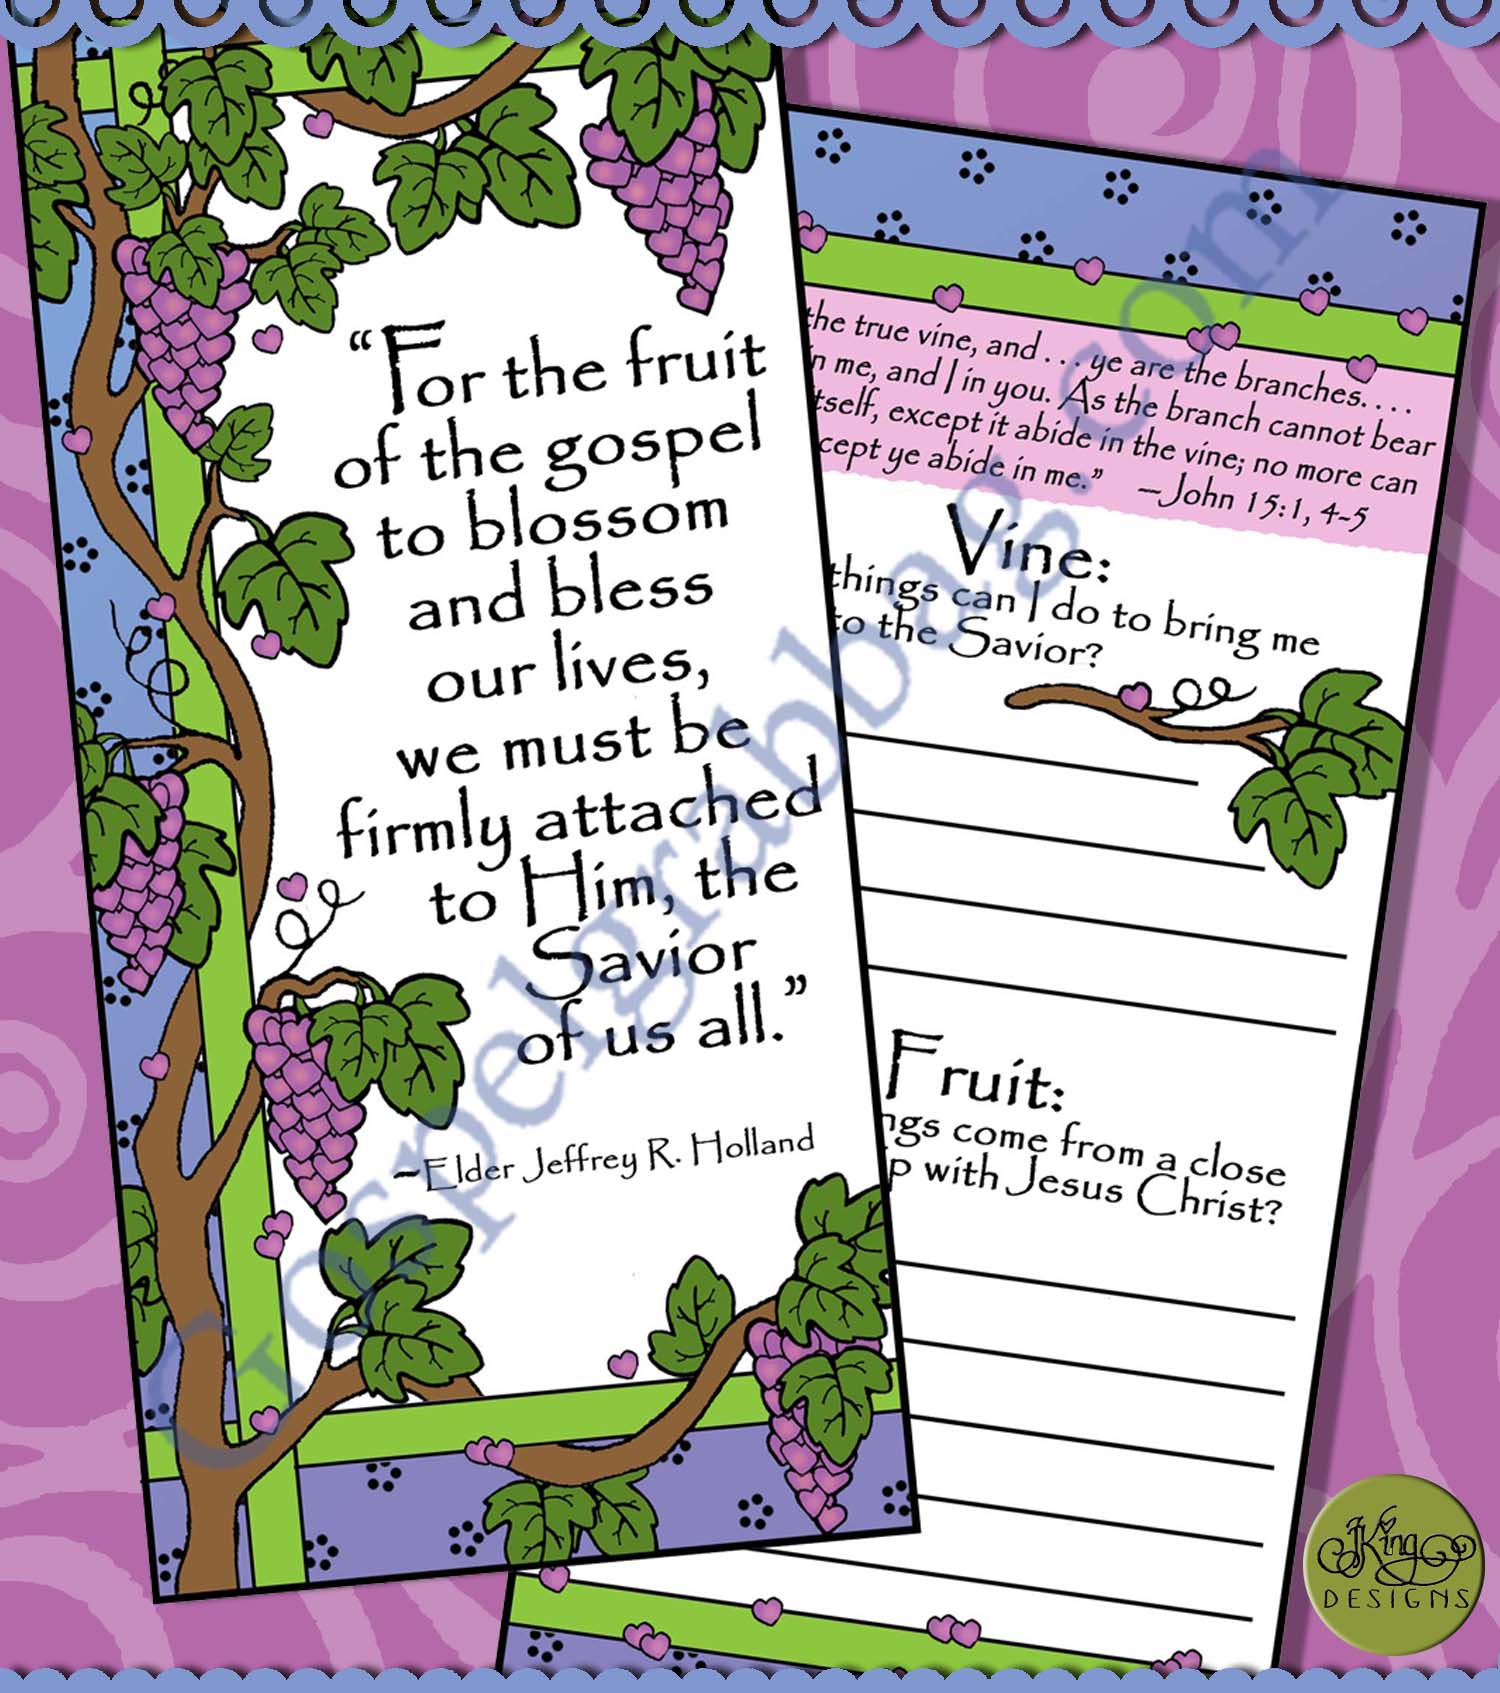 “For the fruit
of the gospel
to blossom
and bless
our lives,
we must be
firmly attached
to Him, the
Savior
of us all.”
—Elder Jeffrey R. Holland
the true vine, and . . . ye are the branches. . . .
in me, and I in you. As the branch cannot bear
itself, except it abide in the vine; no more can
ye abide in me.” —John 15:1, 4-5
Vine:
things can I do to bring me
to the Savior?
Fruit:
come from a close
with Jesus Christ?
Gospelgrabbag.com
JKing
DESIGNS